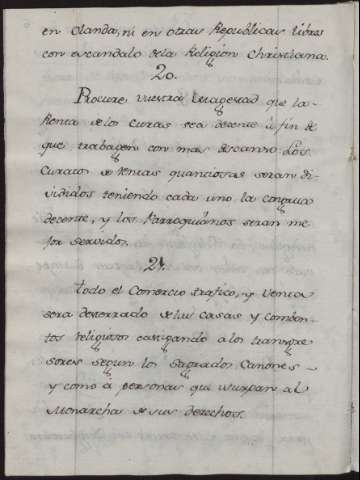 en Olanda, ni en otras Republicas libres
con escandalo de la Religion Christiana.
20.
Procure Vuestra Magestad que la
Renta de los Curas sea decente à fin de
que trabagen con mas descanso. Los
Curatos de Rentas quantiosas seran di-
vididos teniendo cada uno la congrua
decente, y los Parroquianos seran me-
jor servidos.
21.
Todo el Comercio trafico, y Venta
sera desterrado de las Casas y Comben-
tos religiosos castigando a los transgre-
sores segun los Sagrados Canones
y como a personas que usurpan al
Monarcha de sus derechos.